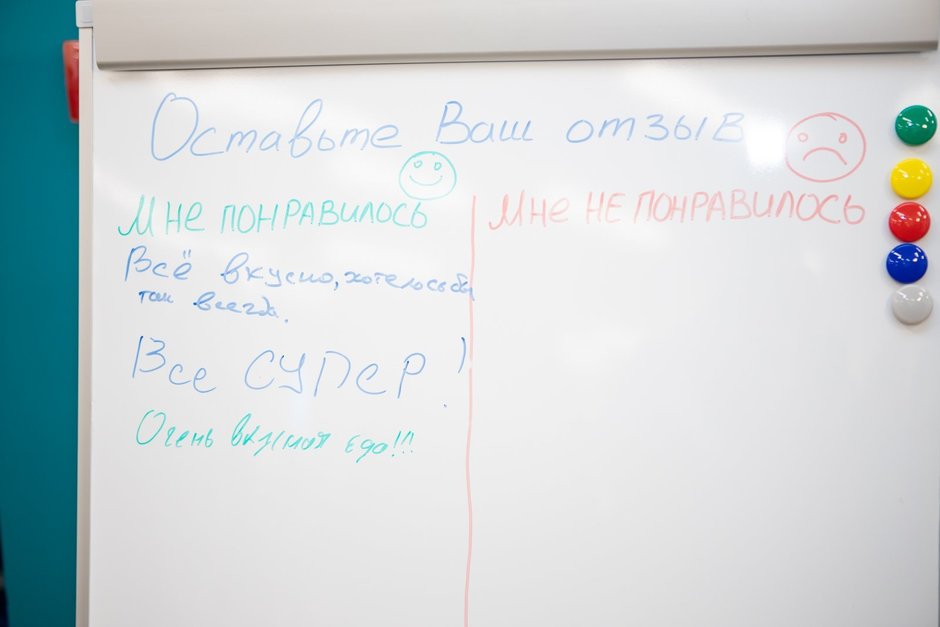 Оставьте Ваш отзыв
Мне понравилось
Мне не понравилось
Всё вкусно, хотелось бы
так всегда.
Все СУПЕР!
Очень вкусная еда!!!